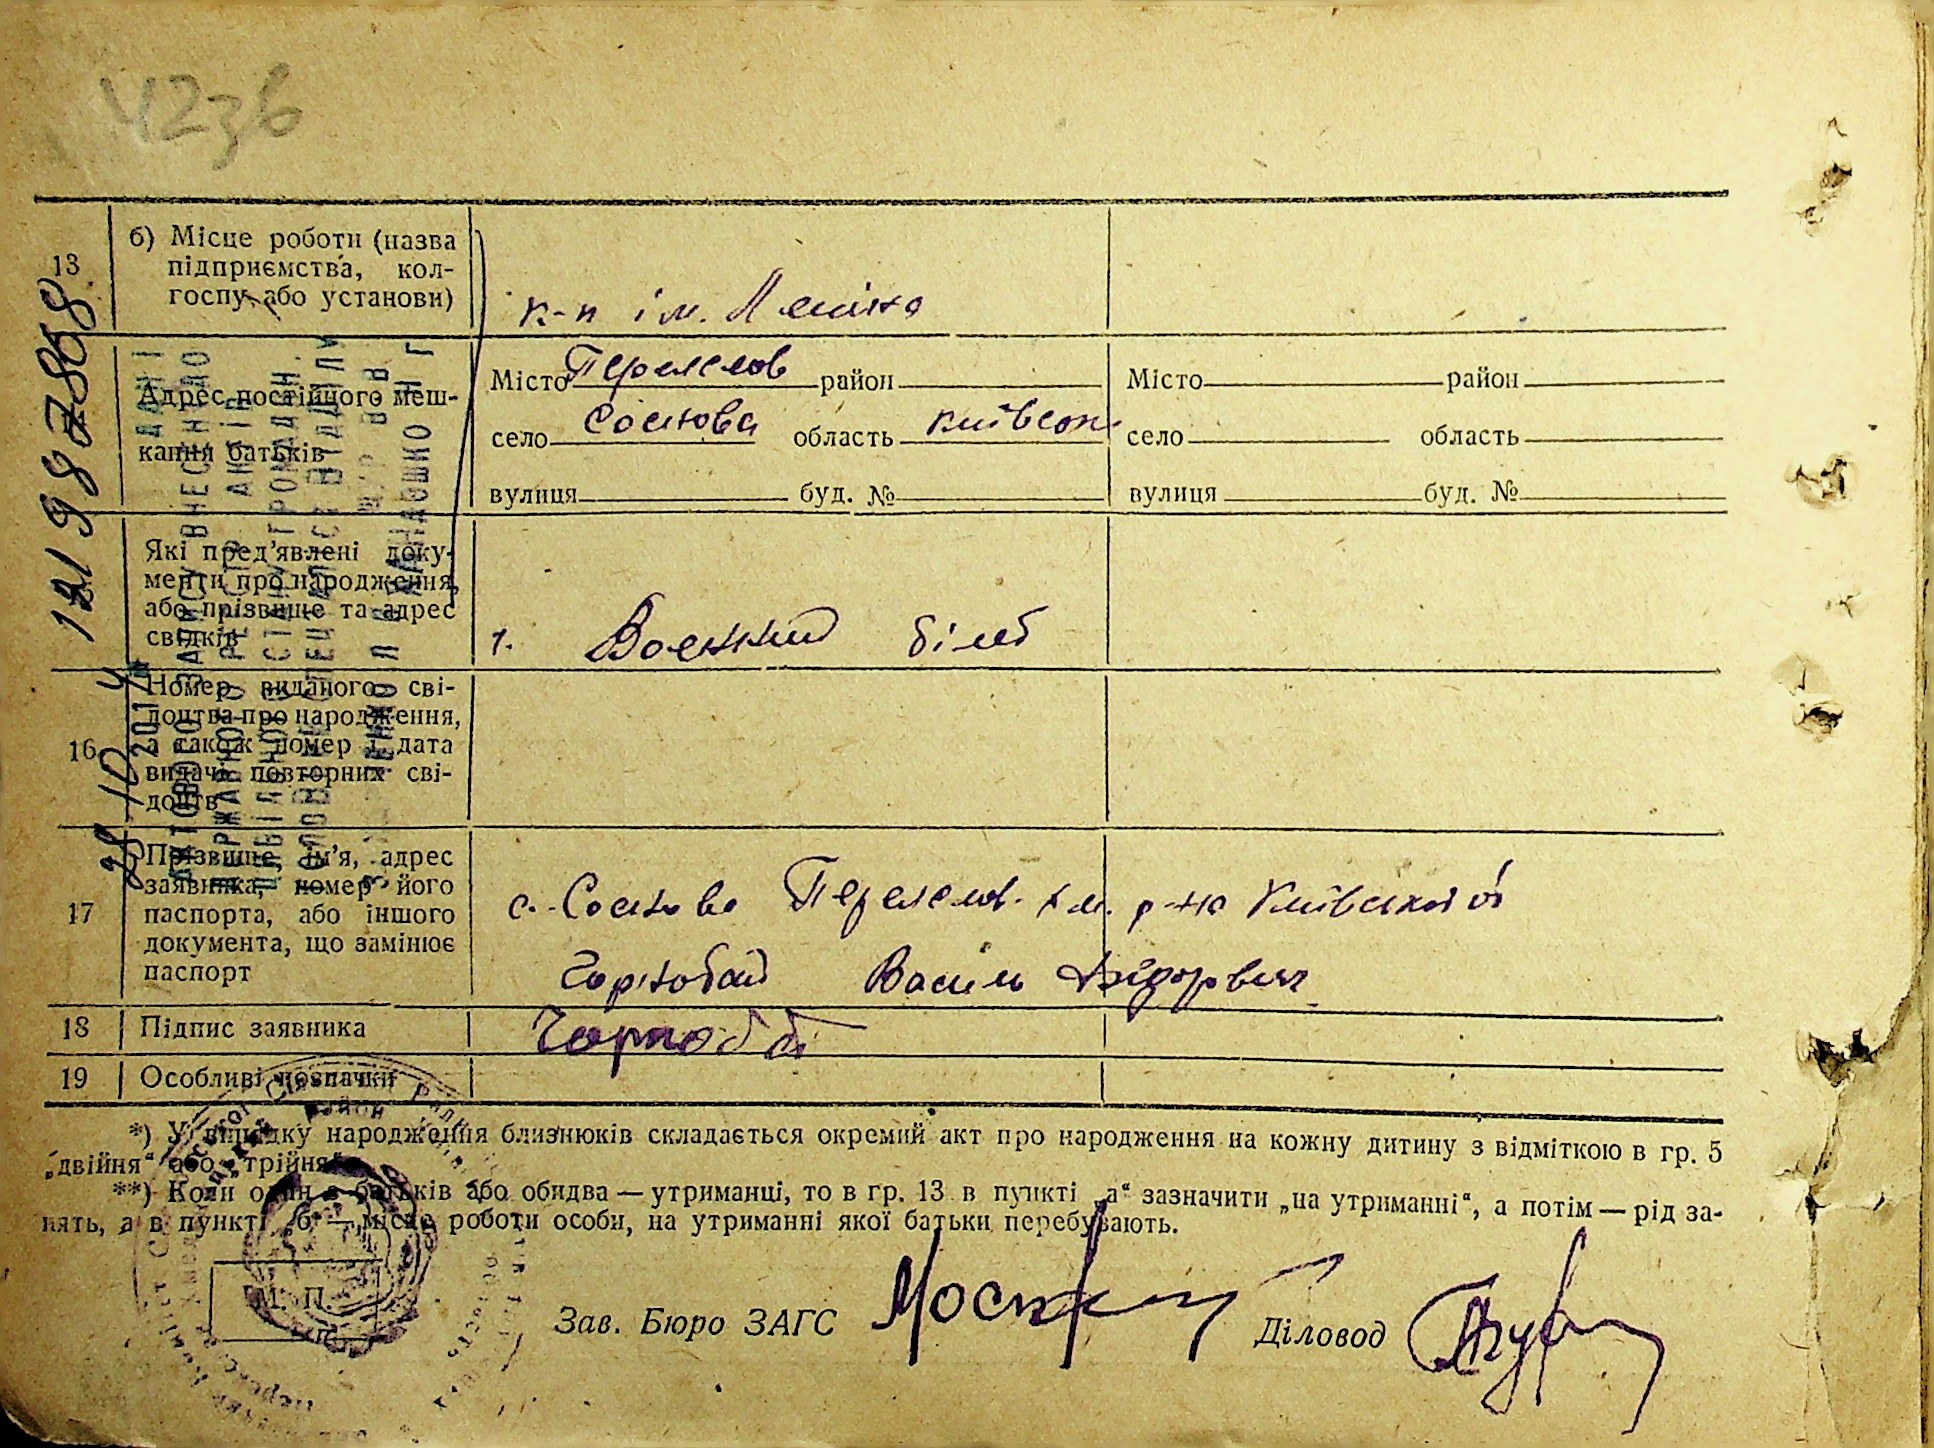 42зв
13 б) Місце роботи (назва
підприємства, кол-
госпу або установи)
к-п ім. Леніна
Адрес постійного меш-
кання батьків
Місто Переяслов район Місто район
село Соснова область Київськ. село область
вулиця буд. № вулиця буд. №
Які пред'явлені доку-
менти про народження,
або прізвище та адрес
свідків
1. Воєнний білет
16 Номер виданого сві-
доцтва про народження,
а також номер і дата
видачі повторних сві-
доцтв
17 Прізвище, ім'я, адрес
заявника, номер його
паспорта, або іншого
документа, що замінює
паспорт
с. Соснова Переяслов-Хм. р-ну Київської об
Чорнобай Василь
18 Підпис заявника
19 Особливі позначки
*) У випадку народження близнюків складається окремий акт про народження на кожну дитину з відміткою в гр. 5
„двійня“ або „трійня“.
**) Коли один з батьків або обидва — утриманці, то в гр. 13 в пункті „а“ зазначити „на утриманні“, а потім — рід за-
нять, а в пункті „б“ — місце роботи особи, на утриманні якої батьки перебувають.
М. П.
Зав. Бюро ЗАГС Діловод